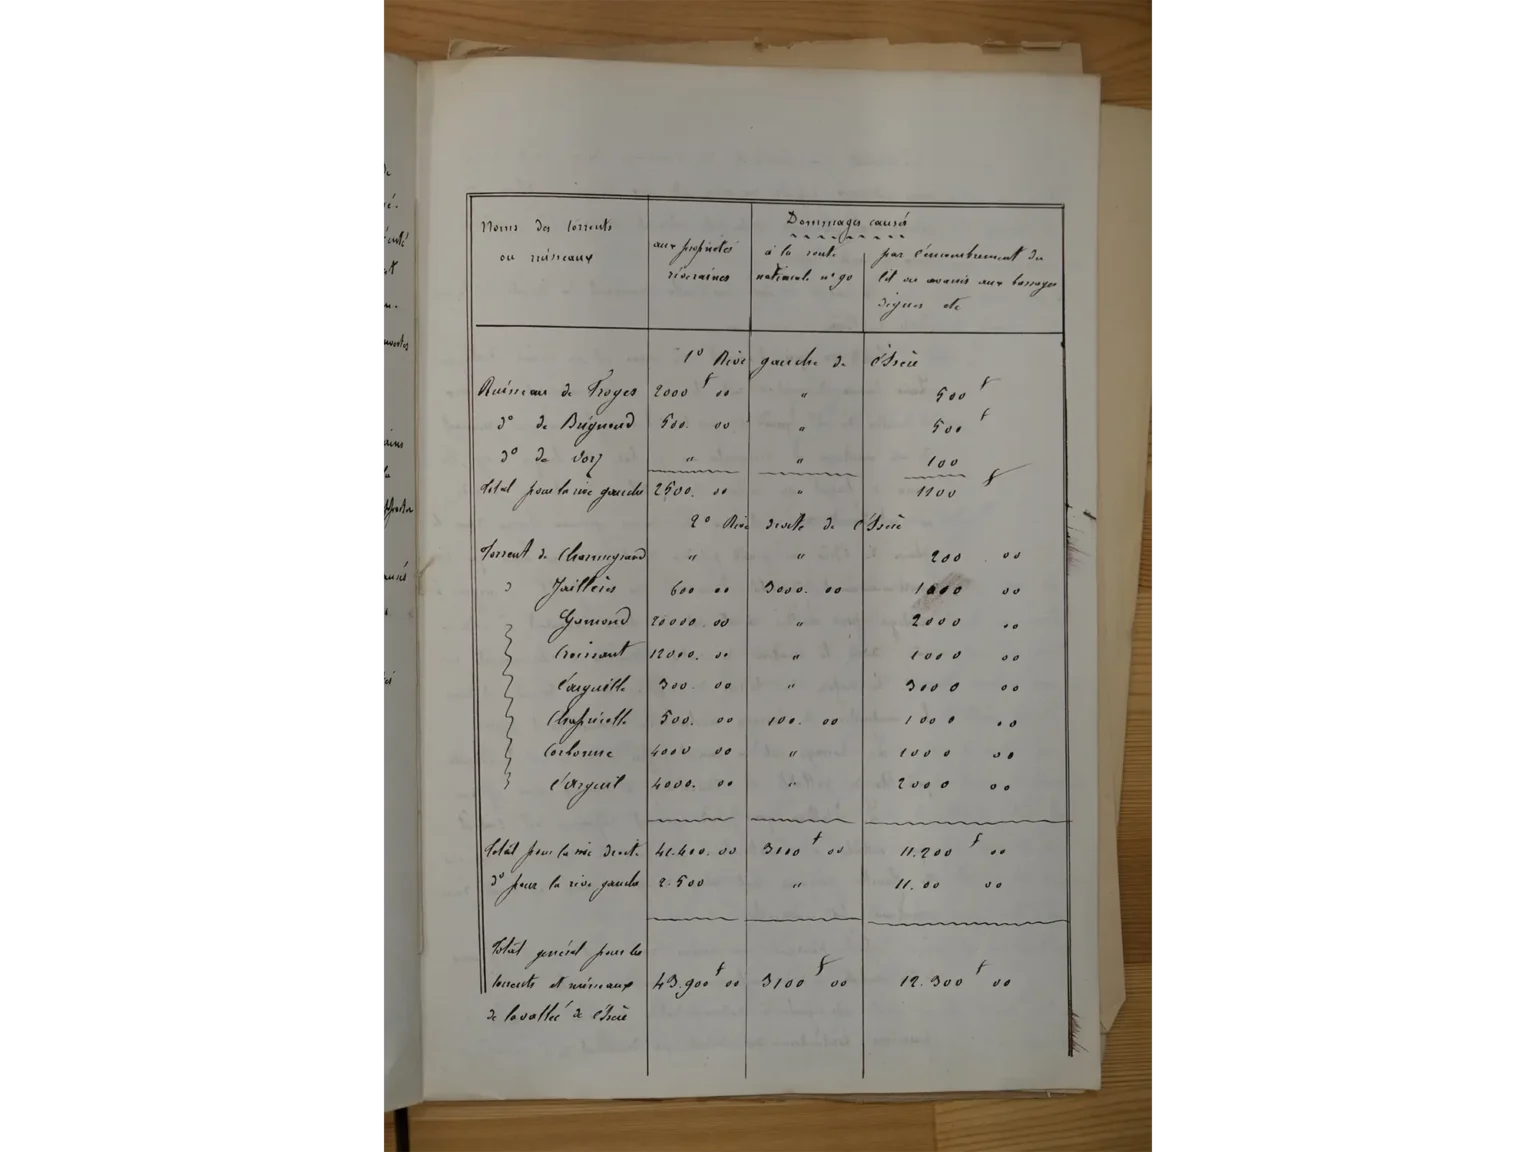 Dommages causés
Noms des torrents
ou ruisseaux
aux propriétés
riveraines
à la route
nationale n° 90
par l'encombrement du
lit ou avaries aux barrages
digues etc
1° Rive gauche de l'Isère
Ruisseau de Froges 2000 f 00 " 500 f
d° de Brignoud 500. 00 " 500 f
d° de Vorz " " 100
Total pour la rive gauche 2500. 00 " 1100 f
2° Rive droite de l'Isère
Torrent de Chamegrand " " 200 . 00
d Jaillières 600 00 3000. 00 1000 00
Gamond 20000. 00 " 2000 00
Croissant 12000. 00 " 1000 00
Carguille 300. 00 " 3000 00
Chapricotte 500. 00 100. 00 1000 00
Corbonne 4000 00 " 1000 00
Carguil 4000. 00 " 2000 00
Total pour la rive droite 41.400. 00 3100 f 00 11.200 f 00
d° pour la rive gauche 2.500 " 11.00 00
Total général pour les
torrents et ruisseaux 43.900 f 00 3100 f 00 12.300 f 00
de la vallée de l'Isère